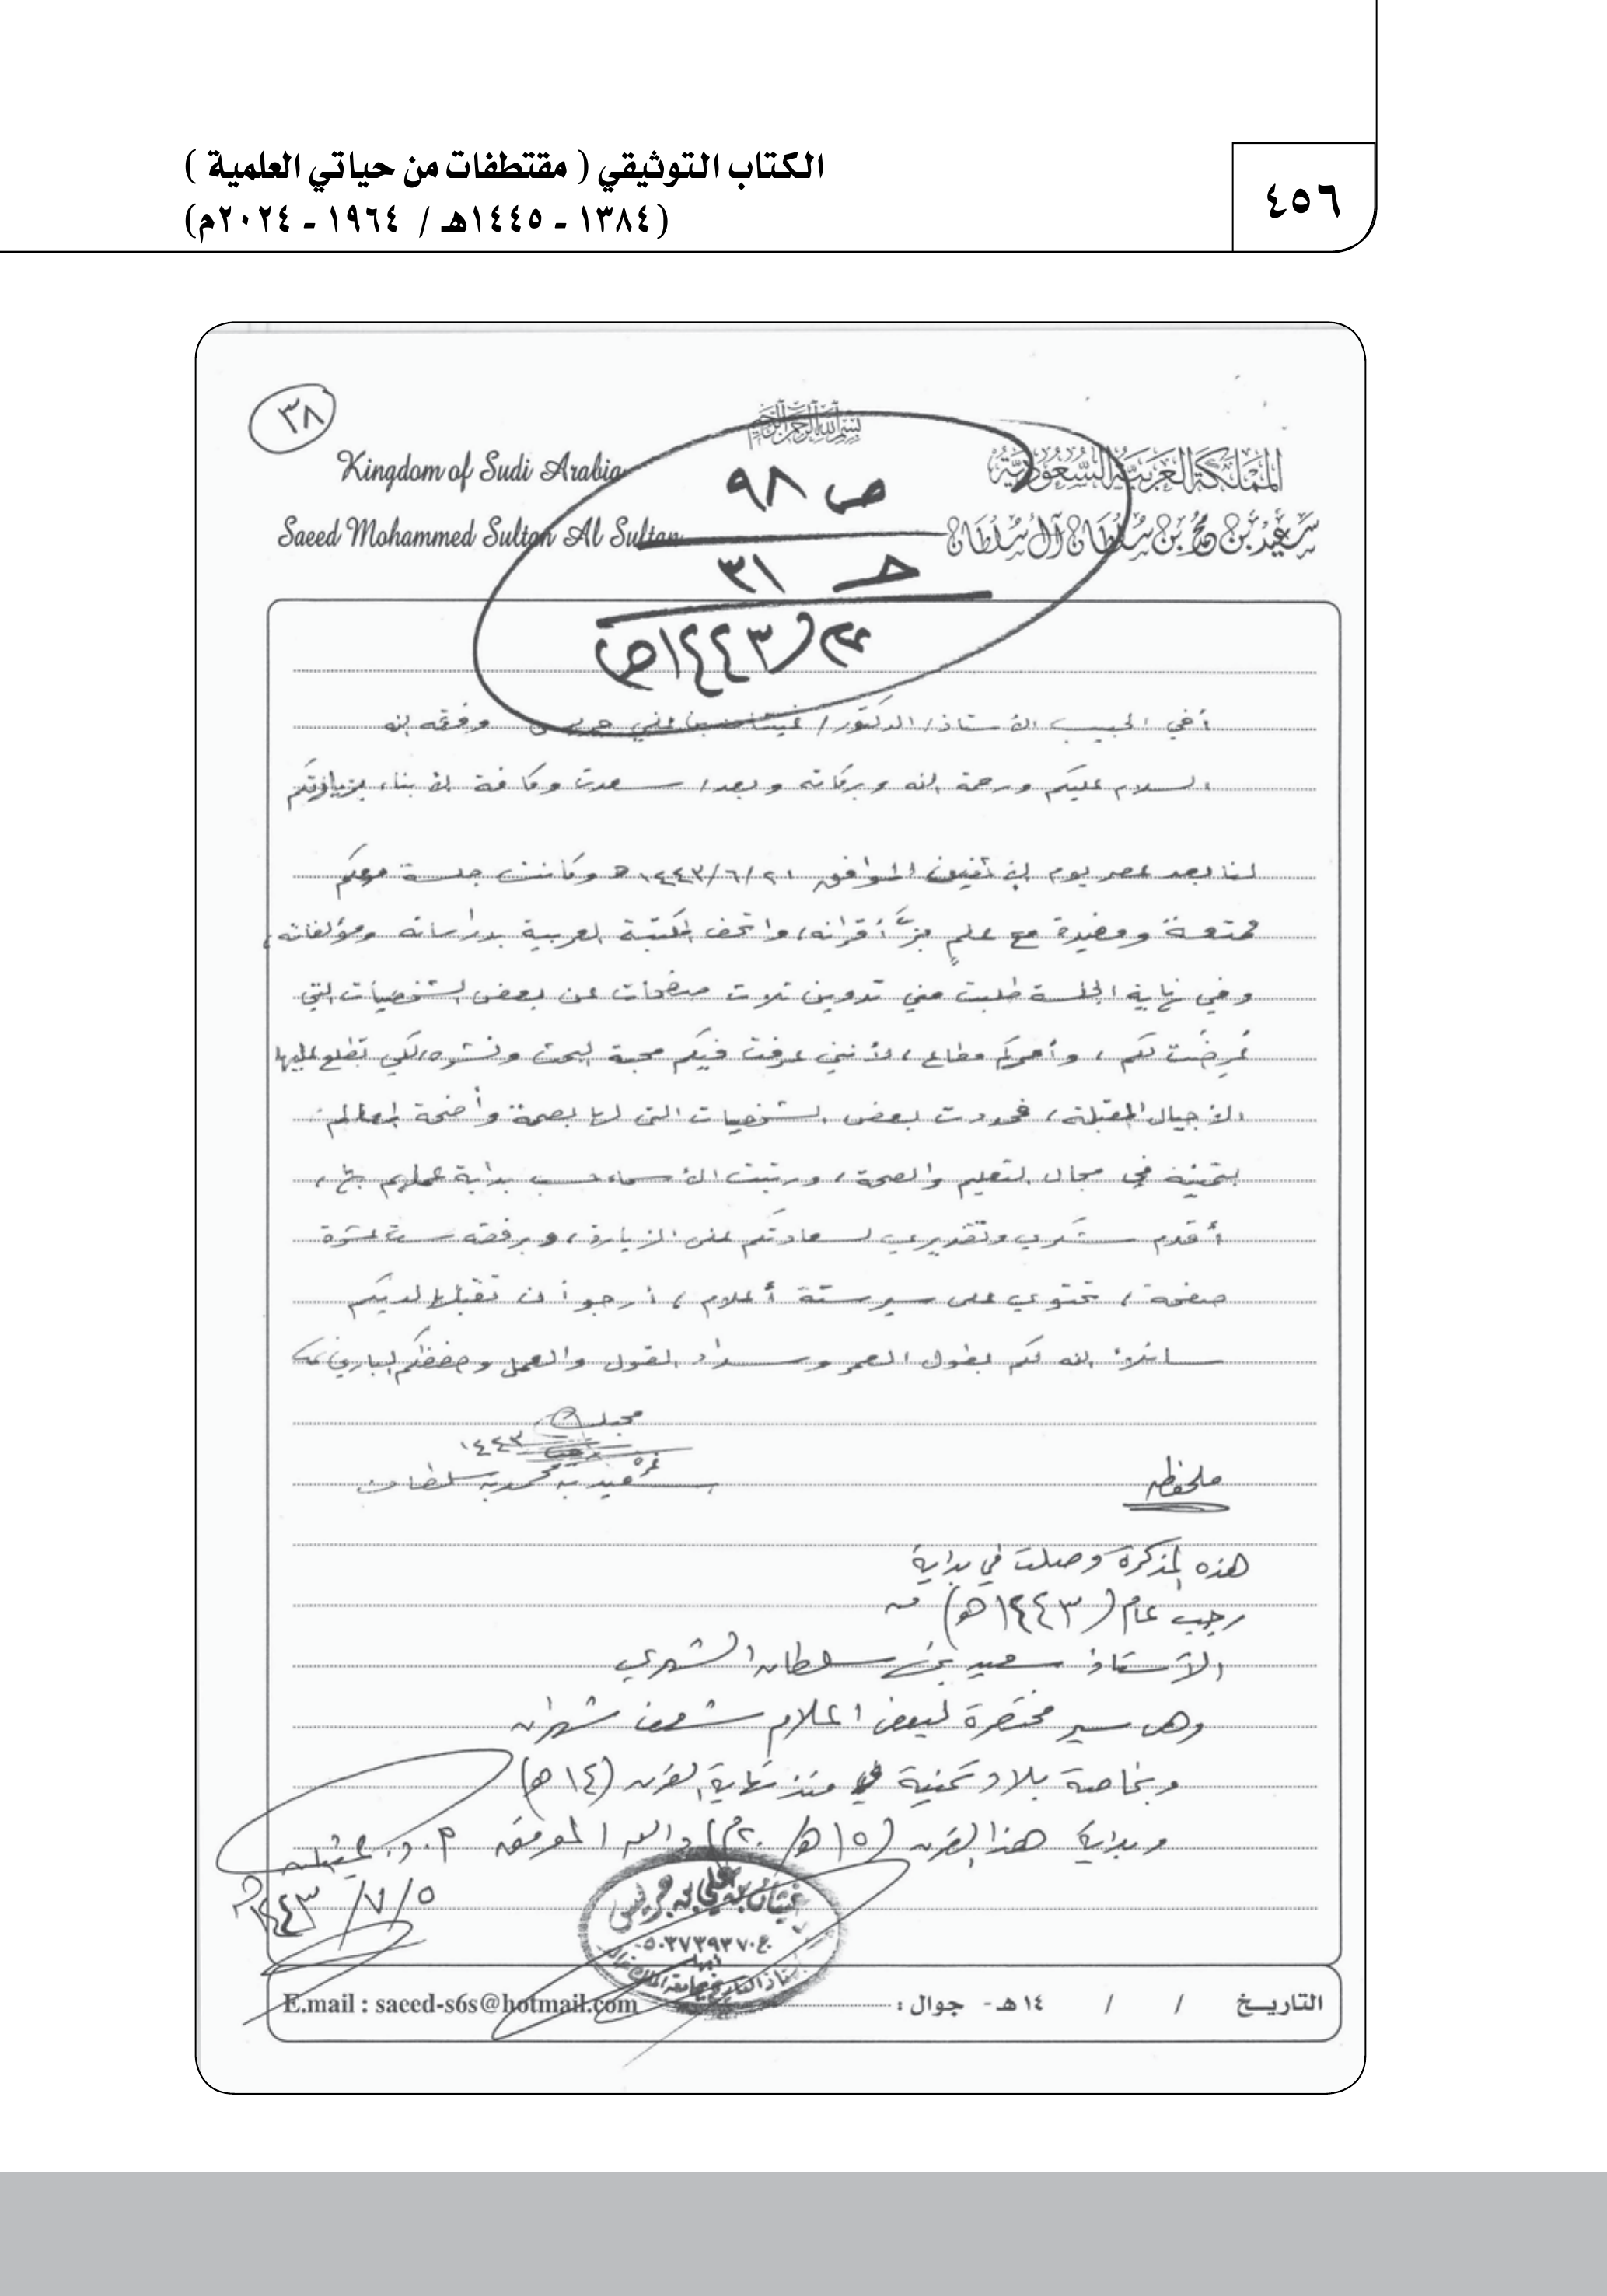 الكتاب التوثيقي ( مقتطفات من حياتي العلمية )
(١٣٨٤ - ١٤٤٥هـ / ١٩٦٤ - ٢٠٢٤م)
٤٥٦
٣٨
بسم الله الرحمن الرحيم
المملكة العربية السعودية
Kingdom of Sudi Arabia
سعيد بن محمد بن سلطان آل سلطان
Saeed Mohammed Sultan Al Sultan
ص ٩٨
حـ ٣١
١٤٤٣هـ
أخي الحبيب الأستاذ الدكتور / غيثان بن علي جريس وفقه الله
السلام عليكم ورحمة الله وبركاته وبعد، سعدت وكافة الأبناء بزيارتكم
لنا بعد عصر يوم الإثنين الموافق ١٤٤٣/٦/٢١هـ وكانت جلسة معكم
ممتعة ومفيدة مع علمٍ بزَّ أقرانه، واتحف المكتبة العربية بدراساته ومؤلفاته،
وفي نهاية الجلسة طلبت مني تدوين ثلاث صفحات عن بعض الشخصيات التي
عُرضت لكم، وأمركم مطاع، لأنني عرفت فيكم محبة البحث ونشره، لكي تطلع عليها
الأجيال المقبلة، فحددت بعض الشخصيات التي لها بصمة واضحة المعالم
بتمنية في مجال التعليم والصحة، ورتبت الأسماء حسب بداية عملهم بها،
أقدم شكري وتقديري لسعادتكم على الزيارة، وبرفقه ست عشرة
صفحة، تحتوي على سير ستة أعلام، أرجو أن تقبل لديكم
سائلاً الله لكم بطول العمر وسداد القول والعمل وحفظكم الباري
محبك
١٤٤٣
سعيد بن محمد بن سلطان
ملحوظه
هذه المذكرة وصلت في بداية
رجب عام (١٤٤٣هـ) من
الأستاذ سعيد بن سلطان الشهري
وهي سير مختصرة لبعض اعلام شعف شهران
وبخاصة بلاد تمنية في منذ نهاية القرن (١٤هـ)
وبداية هذا القرن (١٥هـ/٢٠م) والله الموفق
١٤٤٣/٧/٥هـ
غيثان بن علي بن جريس
ج ٠٥٠٣٧٣٩٣٧٠
أبها
أستاذ التاريخ بجامعة الملك خالد
التاريخ / / ١٤هـ - جوال :
E.mail : saeed-s6s@hotmail.com